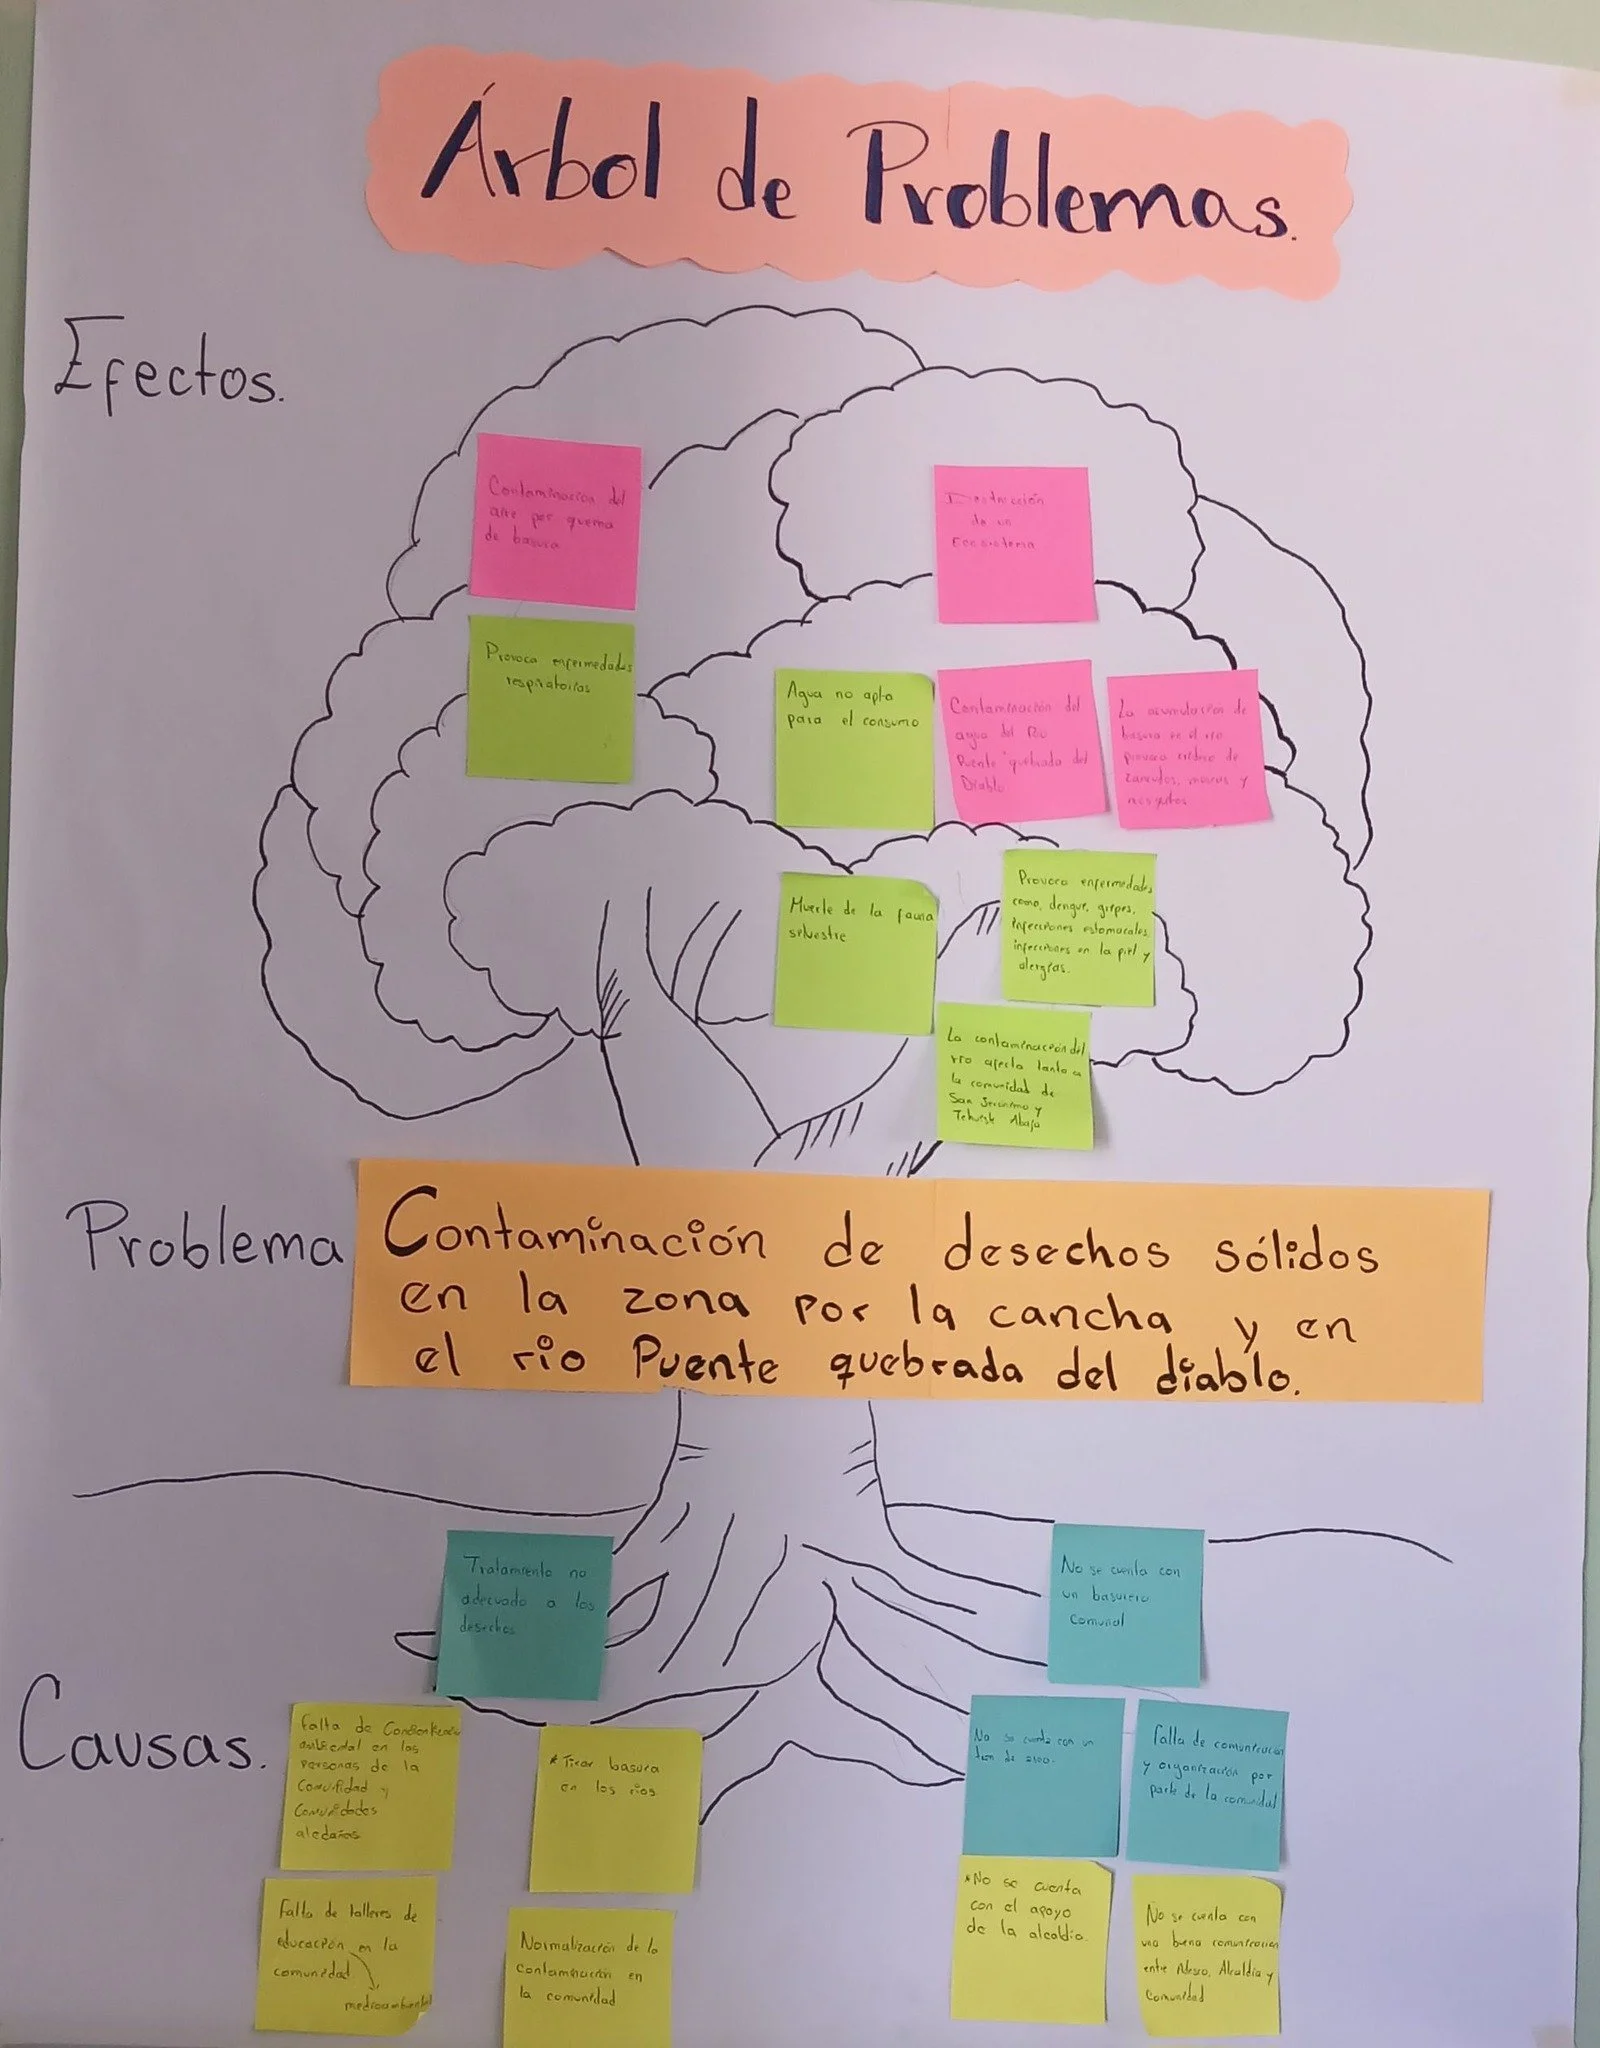 Árbol de Problemas.
Efectos.
Contaminación del
aire por quema
de basura
Destrucción
de un
Ecosistema
Provoca enfermedades
respiratorias
Agua no apta
para el consumo
Contaminación del
agua del Rio
Puente quebrada del
Diablo
La acumulación de
basura en el rio
provoca de
zancudos, moscas y
mosquitos
Muerte de la fauna
selvestre
Provoca enfermedades
como, dengue, gripes,
infecciones estomacales,
infecciones en la piel y
alergias.
La contaminación del
rio afecta tanto a
la comunidad de
San Jerónimo y
Abajo
Problema
Contaminación de desechos sólidos
en la zona por la cancha y en
el rio Puente quebrada del diablo.
Causas.
Tratamiento no
adecuado a los
desechos
No se cuenta con
un basurero
Comunal
Falta de
ambiental en las
Personas de la
Comunidad y
Comunidades
aledañas
* Tirar basura
en los rios
No se cuenta con un
tren de aseo.
Falta de comunicacion
y organización por
parte de la comunidad
Falta de talleres de
educación en la
comunidad
medioambiental
Normalización de la
contaminación en
la comunidad
*No se cuenta
con el apoyo
de la alcaldia.
No se cuenta con
una buena comunicacion
entre Adesco, Alcaldía y
Comunidad